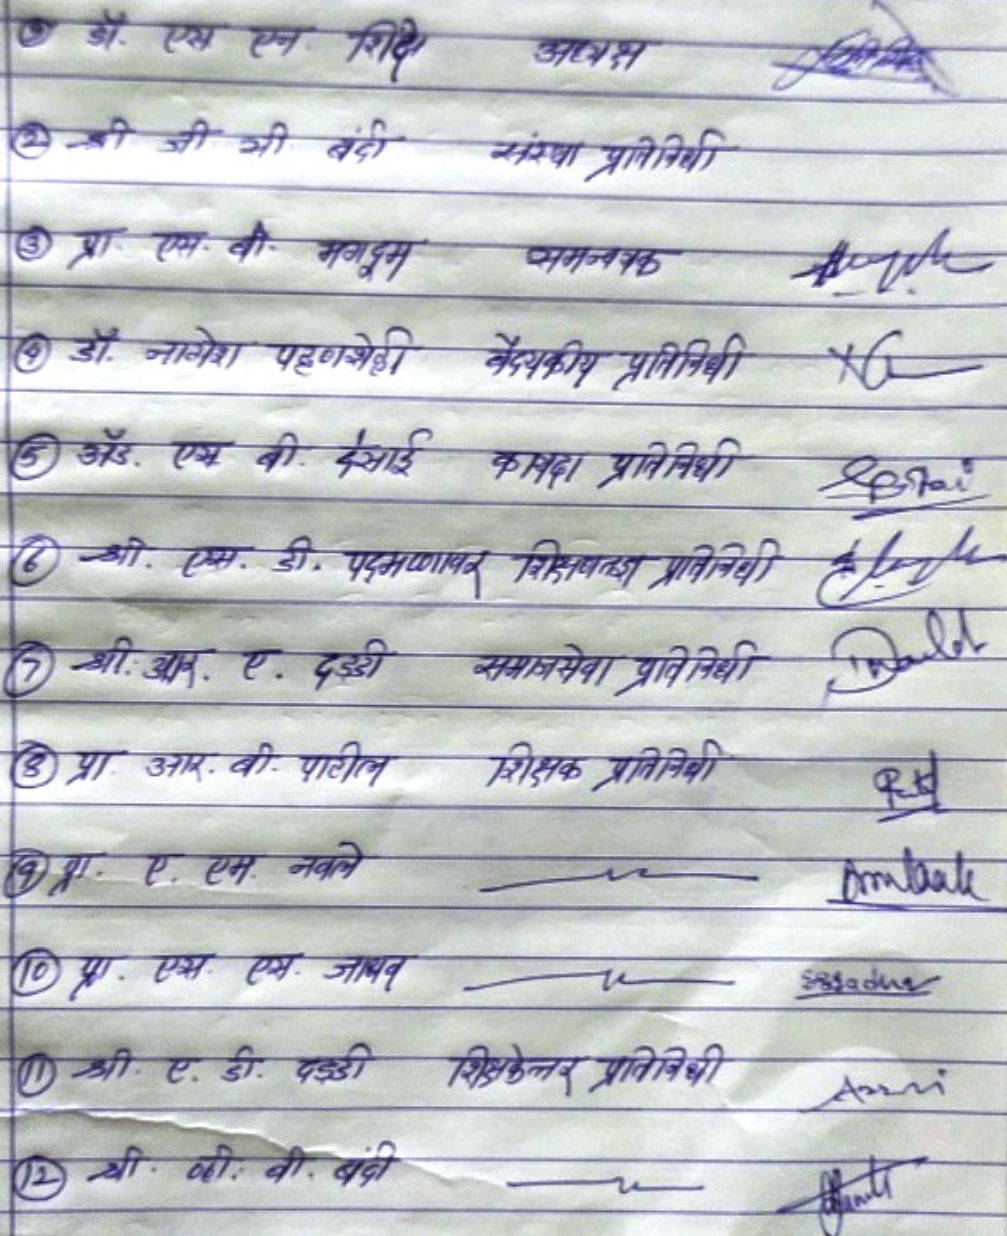 ① डॉ. एस एन. शिंदे अध्यक्ष
② श्री जी सी बंदी संस्था प्रतिनिधी
③ प्रा. एस. बी. मगदूम समन्वयक
④ डॉ. नागेश पट्टणशेट्टी वैद्यकीय प्रतिनिधी
⑤ ॲड. एस बी. देसाई कायदा प्रतिनिधी
⑥ श्री. एस. डी. पदमण्णावर शिक्षणतज्ञ प्रतिनिधी
⑦ श्री. आर. ए. दड्डी समाजसेवा प्रतिनिधी
⑧ प्रा. आर. बी. पाटील शिक्षक प्रतिनिधी
⑨ प्रा. ए. एम. नवले —〃—
⑩ प्रा. एस. एस. जाधव —〃— SSJadhav
⑪ श्री. ए. डी. दड्डी शिक्षकेत्तर प्रतिनिधी
⑫ श्री. व्ही. बी. बंदी —〃—